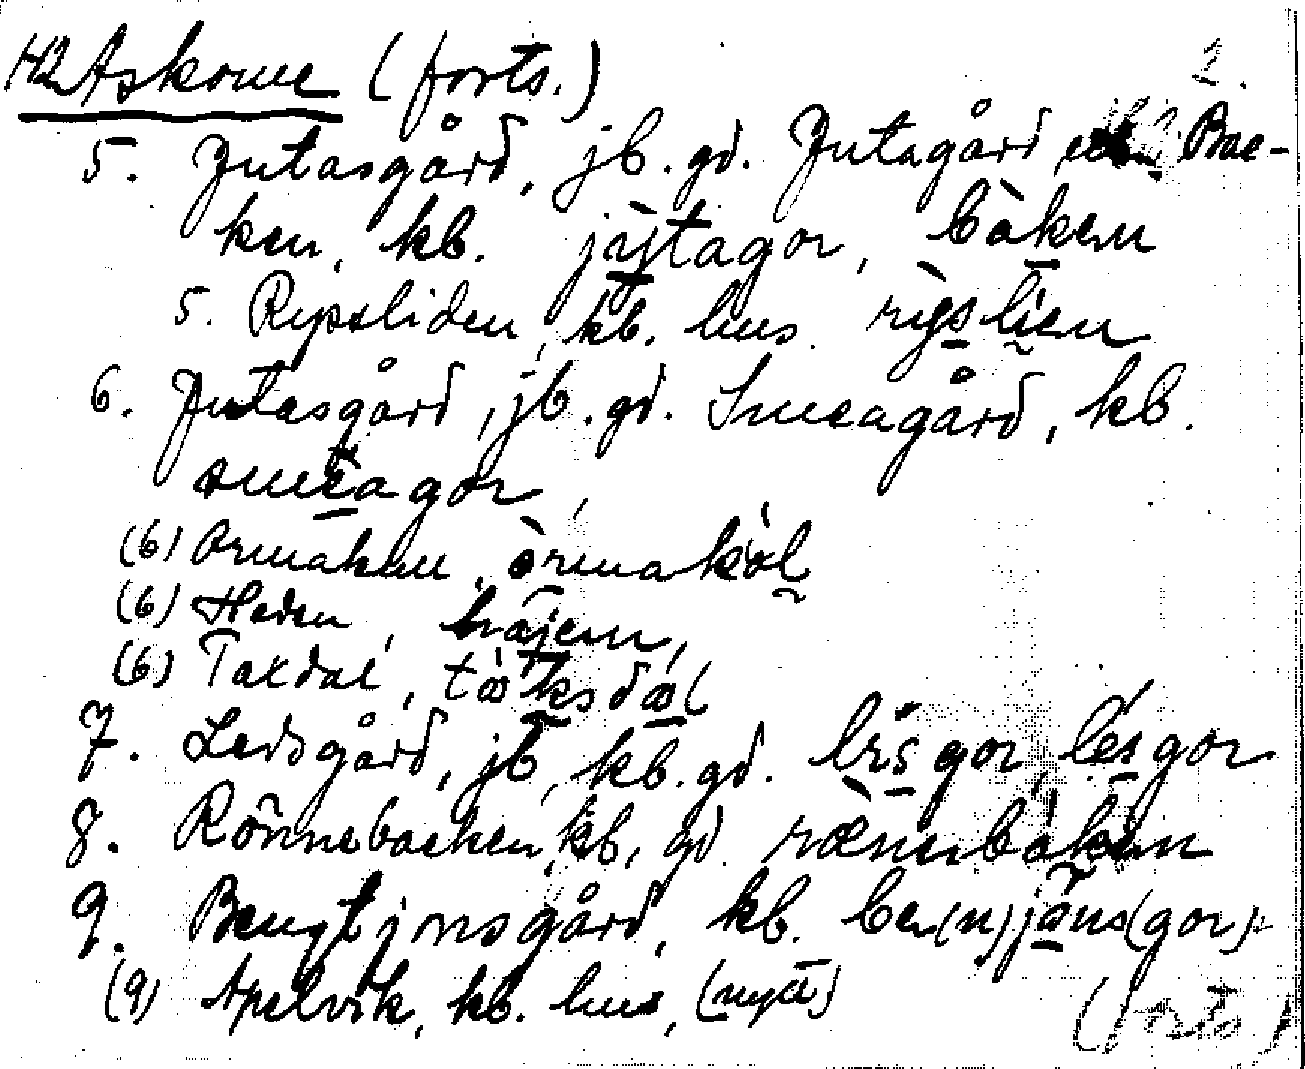 Askome (forts.) 2.
5. Jutasgård, jb. gd. Jutagård Bac-
ken, kb. jỳtagor, bàken
5. Rypsliden, kb. hus. rỳsli̱en
6. Jutasgård, jb. gd. Smeagård, kb.
smeagor,
(6) Ormakull, òrmakól
(6) Heden, hàjen,
(6) Taxdal, tàksdál
7. Ledsgård, jb, kb. gd. lesgor, lésgor
8. Rönnebacken, kb. gd. rænnbàken
9. Bengtjonsgård, kb. be(n)jàns(gor)
(9) Apelvik, kb. hus, (nya)
(forts)